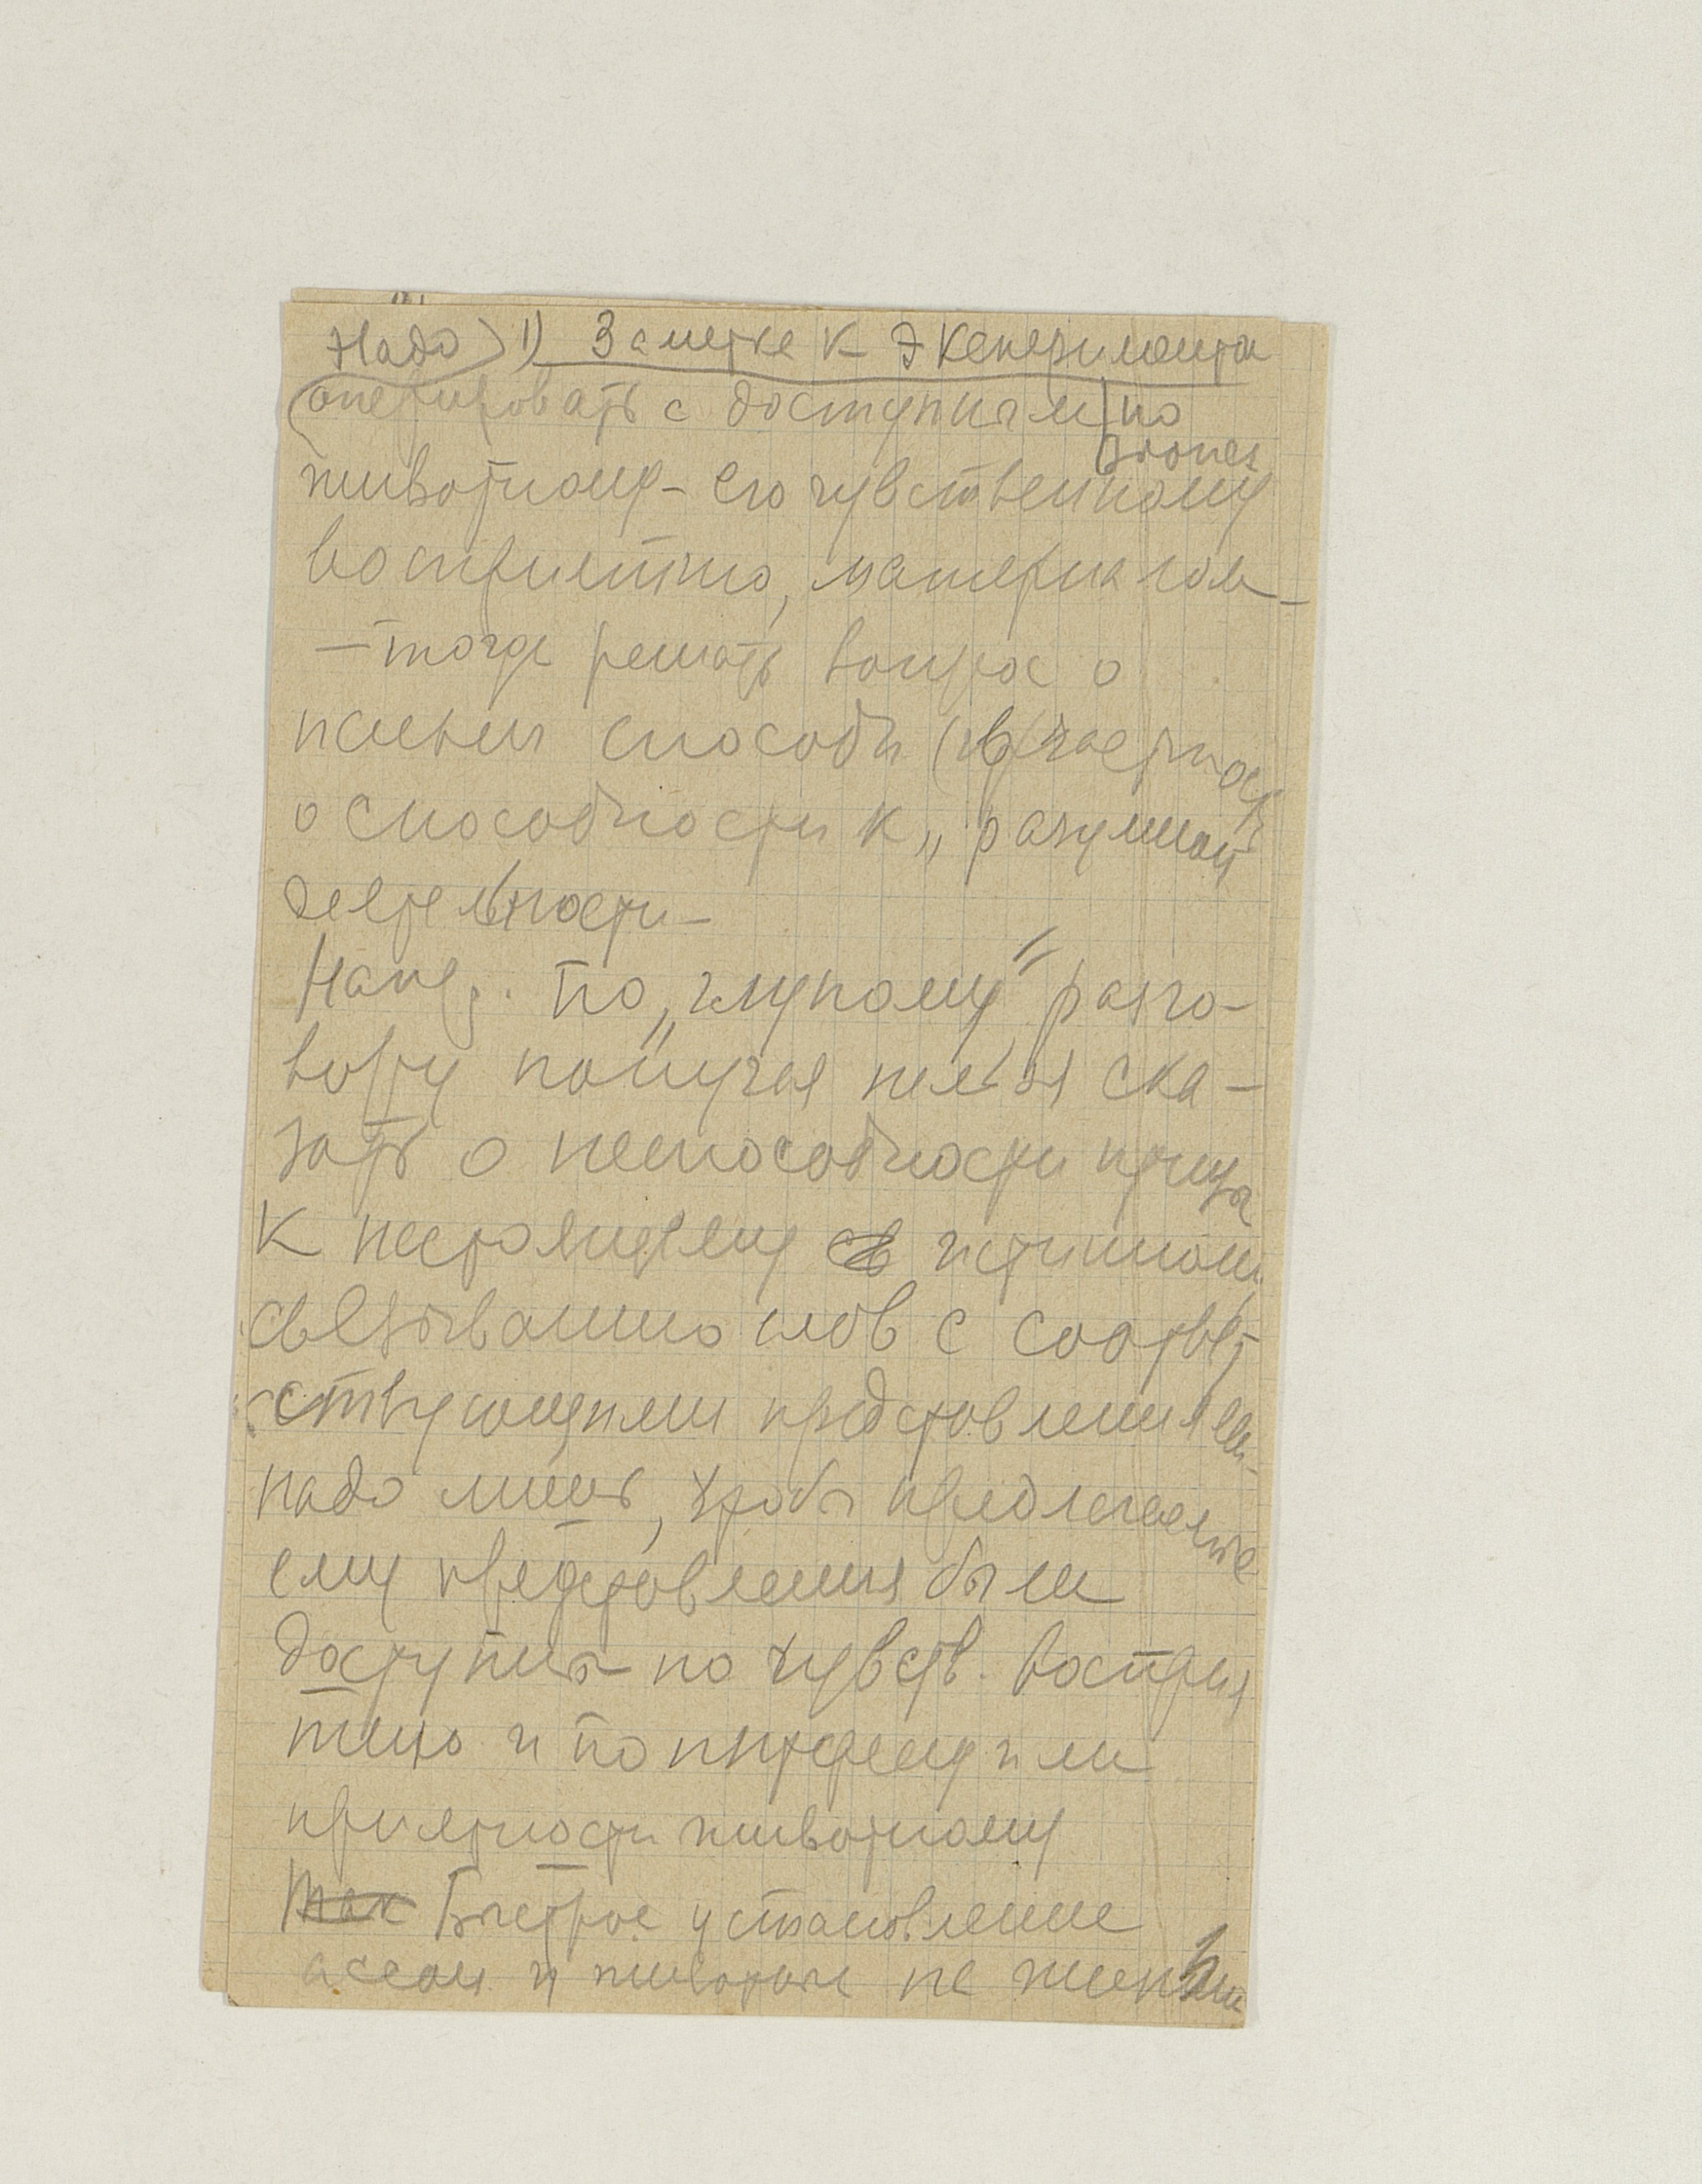 Надо 1) Заметке к Экксперимента
оперировать с доступным по
животному – его чувственному
восприятию, материалом –
– тогда решать вопрос о
психич способн (в частност
о способности к „разумной
деятельности –
Напр. по „глупому" разго-
вору попугая нельзя ска-
зать о неспособности птицы
к настоящему истинному
связыванию слов с соответ
ствующими представлениям –
надо лишь, чтобы предлагаемые
ему представления были
доступны по чувств. восприя
тию и по интересу или
приятности животному
Так Быстрое установление
ассоц у животн не